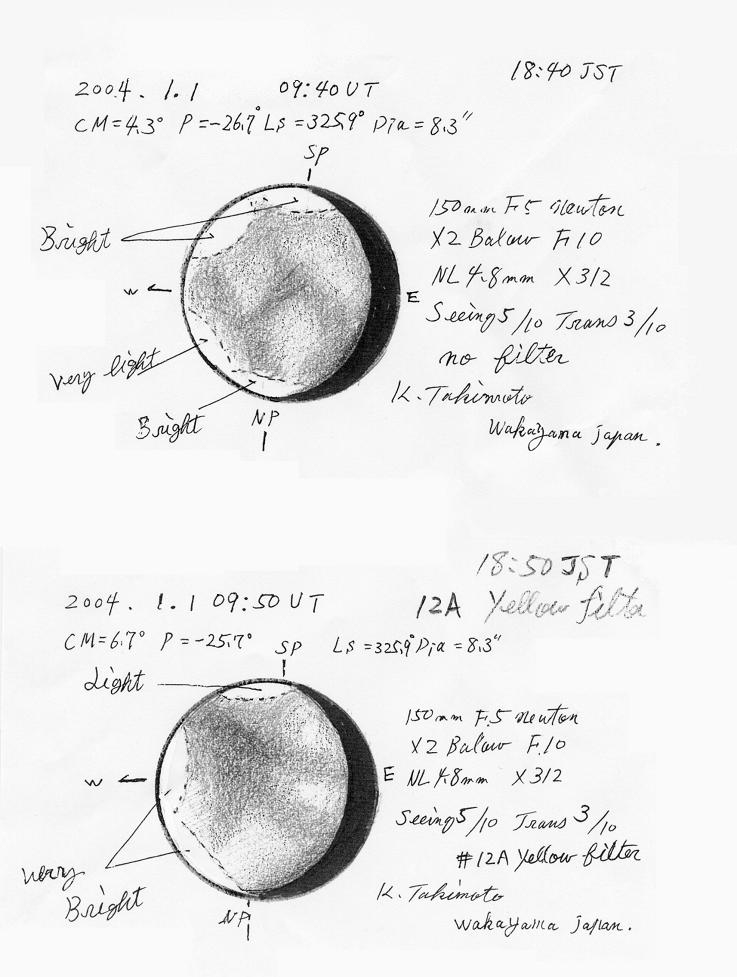 18:40 JST
2004. 1. 1 09:40 UT
CM=4.3° P=-26.7° Ls=325.9° Dia=8.3"
SP
Bright
W
E
very light
Bright
NP
150mm F.5 Newton
X2 Balow F.10
NL 4.8mm X312
Seeing 5/10 Trans 3/10
no filter
K. Takimoto
Wakayama japan.
18:50 JST
12A Yellow filte
2004. 1. 1 09:50 UT
CM=6.7° P=-25.7° SP Ls=325.9° Dia=8.3"
Light
W
E
very
Bright
NP
150mm F.5 Newton
X2 Balow F.10
NL 4.8mm X312
Seeing 5/10 Trans 3/10
#12A Yellow filter
K. Takimoto
Wakayama japan.